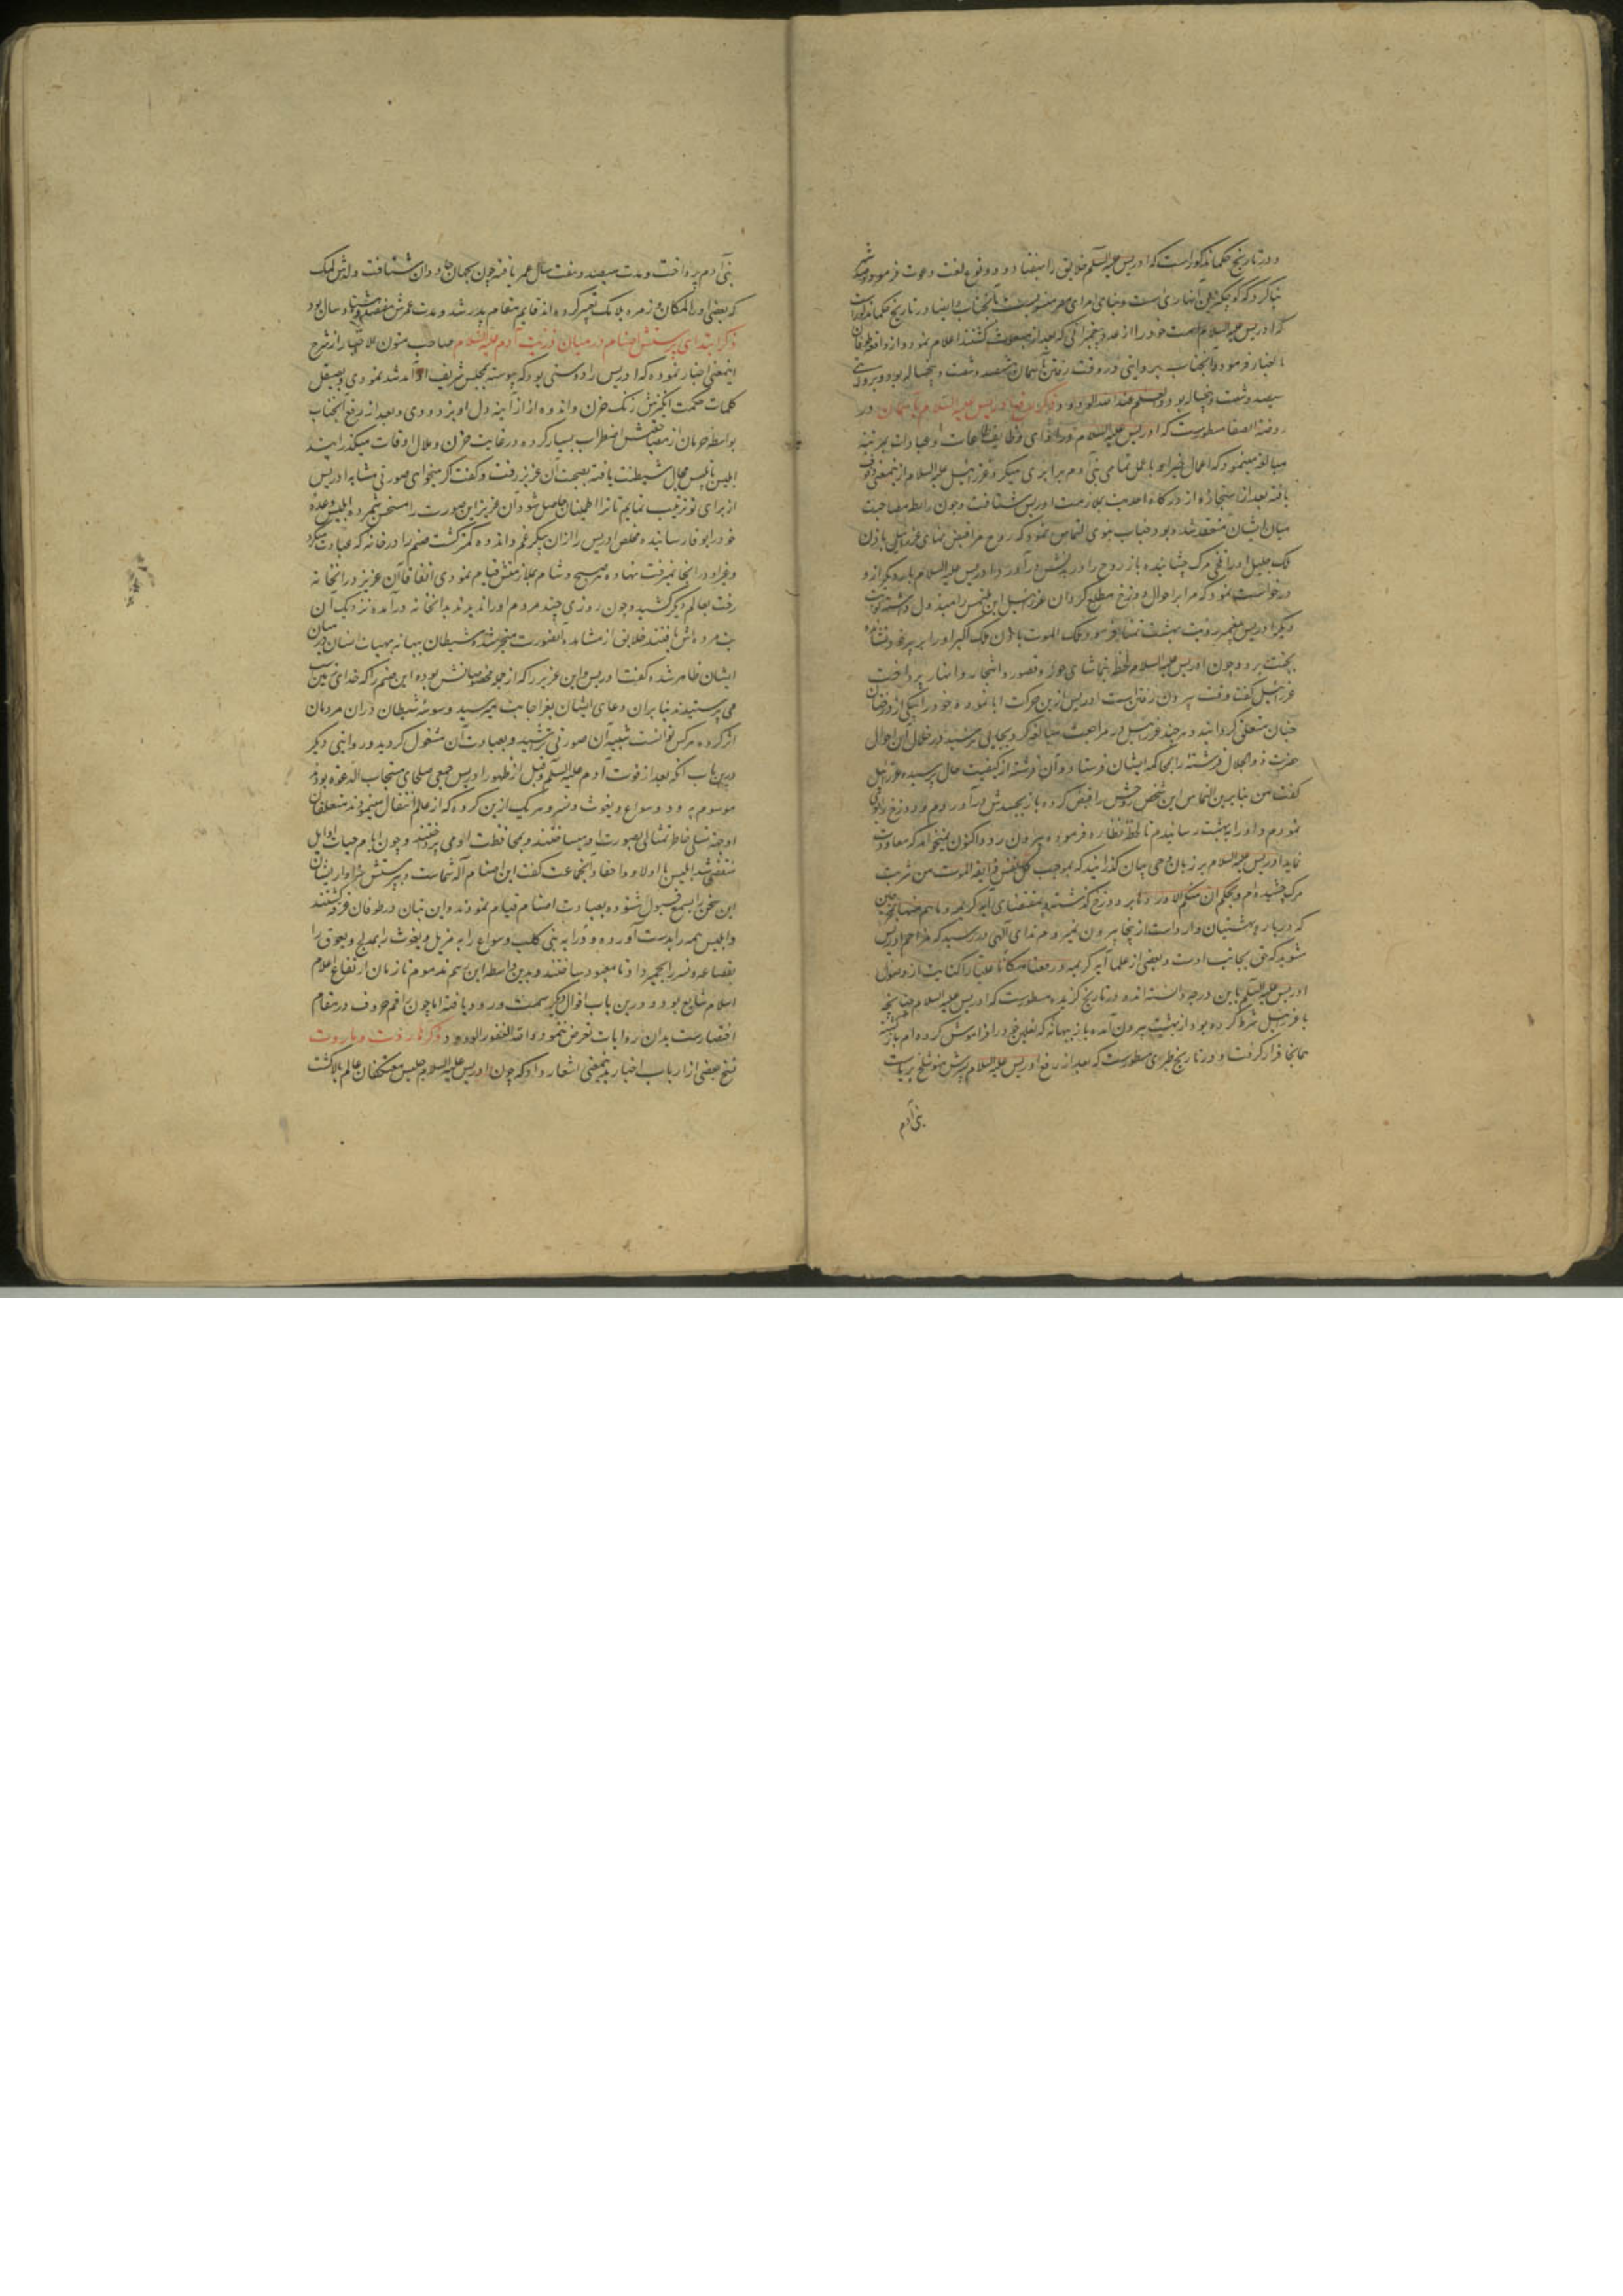 و در تاریخ حکما مذکور است که ادریس علیه السلم خلایق را بهفتاد و دو نوع لغت دعوت فرمود و صد شهر
بنا کرد که کوچکترین آنها رها است و بنای اهرام مصر منسوبست بآنجناب و ایضا در تاریخ حکما مذکور است
که ادریس علیه السلام امت خود را از عدد پیغمبرانی که بعد از مبعوث کشتند اعلام نمود و از واقعه طوفان
اخبار فرمود و آنجناب بروایتی در وقت رفتن بآسمان سیصد و شصت و پنجساله بود و بروایتی
سیصد و شصت و پنجسال بود و العلم عند الله الودود ذکر رفع ادریس علیه السلام بآسمان در
روضة الصفا مسطورست که ادریس علیه السلام در ادای وظایف طاعات و عبادات بمرتبه
مبالغه مینمود که اعمال خیر او با عمل تمامی بنی آدم برابری میکرد و عزرائیل علیه السلام ازینمعنی وقوف
یافته بعد از استجازه از درکاه احدیت بملازمت ادریس شتافت و چون رابطه مصاحبت
میان ایشان منعقد شد و بود جناب نبوی التماس نمود که روح مرا قبض نمای عزرائیل باذن
ملک جلیل او را تلخی مرک چشانیده باز روح را در بدنش درآورد و ادریس علیه السلام بار دیکر ازو
درخواست نمود که مرا بر احوال دوزخ مطلع کردان عزرائیل این ملتمس را مبذول داشته نوبت
دیکر ادریس پیغمبر رؤیت بهشت تمنا فرمود و ملک الموت باذن ملک اکبر او را بر پر خود نشانده
بجنت برد و چون ادریس علیه السلام لحظه بتماشای حور و قصور و اشجار و انهار پرداخت
عزرائیل کفت وقت بیرون رفتن است ادریس ازین حرکت ابا نموده خود را بیکی از درختان
جنان متعلق کردانید و هرچند عزرائیل در مراجعت مبالغه کرد بجایی نرسید در خلال این احوال
حضرت ذو الجلال فرشته را بمحاکمه ایشان فرستاد و آن فرشته از کیفیت حال پرسیده عزرائیل
کفت من بنابرین التماس این شخص روحش را قبض کرده باز بجسدش درآوردم و دوزخ را بوی
نمودم و او را به بهشت رسانیدم تا لحظه نظاره فرموده بیرون رود و اکنون نمیخواهد که معاودت
نماید ادریس علیه السلام بر زبان وحی بیان کذرانید که بموجب کل نفس ذایقة الموت من شربت
مرک چشیده‌ام و بحکم ان منکم الا واردها بر دوزخ کذشته و بمقتضای آیه کریمه و ما هم منها بمخرجین
که درباره بهشتیان وارد است از ینجا بیرون نمیروم ندای الهی در رسید که مزاحم ادریس
مشوید که حق بجانب اوست و بعضی از علما آیه کریمه و رفعناه مکانا علیا را کنایت از وصول
ادریس علیه السلم باین درجه دانسته‌اند و در تاریخ کزیده مسطورست که ادریس علیه السلام چنانچه
با عزرائیل شرط کرده بود از بهشت بیرون آمده باز ببهانه که نعلین خود را فراموش کرده‌ام باز کشته
همانجا قرار کرفت و در تاریخ طبری مسطورست که بعد از رفع ادریس علیه السلام پسرش متوشلخ بریاست
بنی آدم
بنی آدم پرداخت و مدت سیصد و هفت سال عمر یافته چون بجهان جاودان شتافت ولدش لمک
که بعضی او را لمکان و زمره بلامک تعبیر کرده‌اند قایم مقام پدر شد و مدت عمرش هفتصد و هشتاد سال بود
ذکر ابتدای پرستش اصنام در میان ذریت آدم علیه السلام صاحب متون الاخبار از شرح
اینمعنی اخبار نموده که ادریس را دوستی بود که پیوسته بمجلس شریف او آمد شد نمودی و بصیقل
کلمات حکمت انکیزش زنک حزن و اندوه را از آینه دل او بزدودی و بعد از رفع آنجناب
بواسطه حرمان از مصاحبتش اضطراب بسیار کرده در غایت حزن و ملال اوقات میکذرانید
ابلیس پرتلبیس مجال شیطنت یافته بصحبت آن عزیز رفت و کفت اکر میخواهی صورتی مشابه ادریس
از برای تو ترتیب نمایم تا ترا اطمینان حاصل شود آن عزیز این صورت را مستحسن شمرده ابلیس وعده
خود را بوفا رسانیده مخلص ادریس را از ان پیکر غم و اندوه کمتر کشت صنم را در خانه که عبادت میکرد
و غیر او در آنجا نمیرفت نهاده هر صبح و شام بملازمتش قیام نمودی اتفاقا آن عزیز در آنخانه
رخت بعالم دیکر کشید و چون روزی چند مردم او را ندیدند بدانخانه درآمده نزدیک آن
بت مرده‌اش یافتند خلایق از مشاهده آنصورت متحیر شده شیطان ببهانه بهیات انسان در میان
ایشان ظاهر شده کفت ادریس و این عزیز را که از جمله مخصوصانش بوده این صنم را که خدای زمین است
می پرستیدند بنابران دعای ایشان بعز اجابت میرسید وسوسه شیطان در ان مردمان
اثر کرده هرکس توانست شبیه آن صورتی تراشید و بعبادت آن مشغول کردید و روایتی دیکر
درین باب آنکه بعد از فوت آدم علیه السلم و قبل از ظهور ادریس جمعی صلحای مستجاب الدعوه بودند
موسوم به ود و سواع و یغوث و نسر و هریک ازین کروه که از عالم انتقال مینمودند متعلقان
او جهة تسلی خاطر تمثالی بصورت او میساختند و بمحافظت او می پرداختند و چون ایام حیات اوایل
منقضی شد ابلیس با اولاد و احفاد آنجماعت کفت این اصنام آله شماست و پرستش سزاوار ایشان
این سخن را بسمع قبول شنوده بعبادت اصنام قیام نمودند و این بتان در طوفان غرق کشتند
و ابلیس همه را بدست آورده ود را به بنی کلب و سواع را به هزیل و یغوث را بمدلج و یعوق را
بقضاعه و نسر را بحمیر داد تا معبود ساختند و بدین واسطه این رسم مذموم تا زمان ارتفاع اعلام
اسلام شایع بود و درین باب اقوال دیکر سمت ورود یافته اما چون راقم حروف در مقام
اختصارست بدان روایات تعرض ننمود و الله الغفور الودود ذکر هاروت و ماروت
تنی بعضی از ارباب اخبار بدینمعنی اشعار داد که چون ادریس علیه السلام جلیس معتکفان عالم بالا کشت